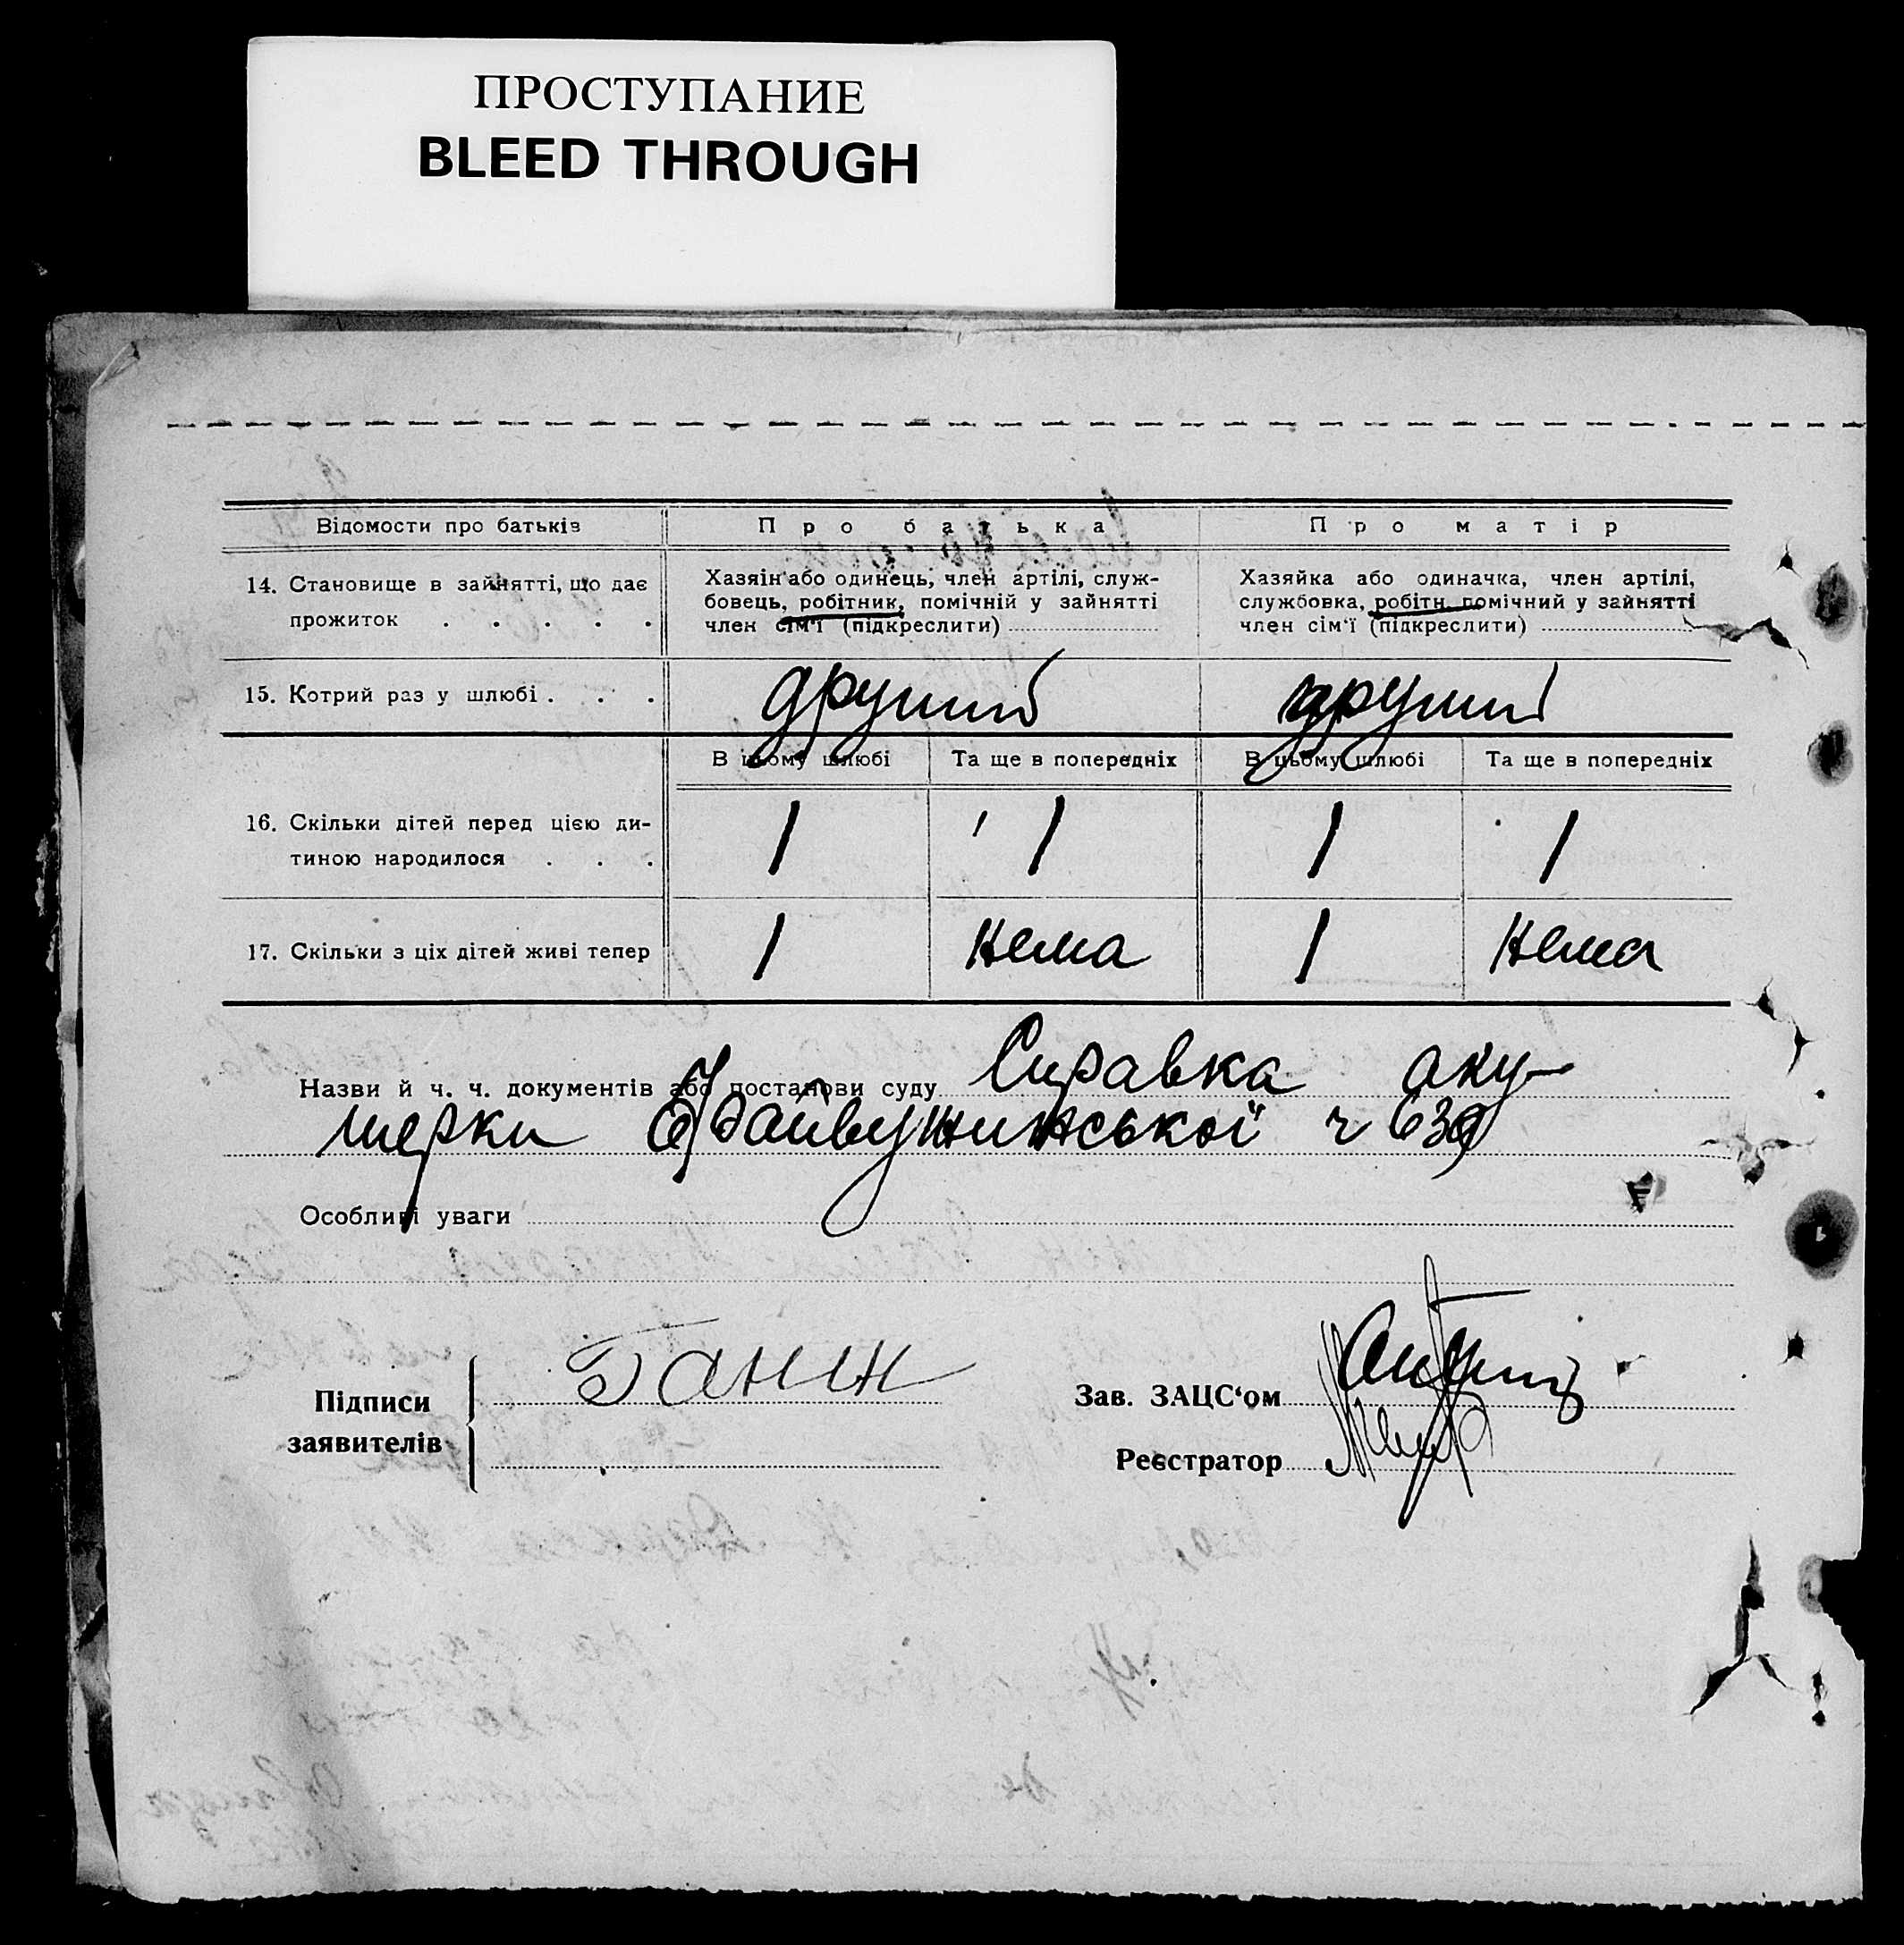 ПРОСТУПАНИЕ
BLEED THROUGH
Відомости про батьків Про батька Про матір
14. Становище в зайнятті, що дає прожиток . . . . .
Хазяін або одинець, член артілі, служ-
бовець, робітник, помічній у зайнятті
член сім'ї (підкреслити)
Хазяйка або одиначка, член артілі,
службовка, робітн. помічний у зайнятті
член сім'ї (підкреслити)
15. Котрий раз у шлюбі . . . другий другий
В цьому шлюбі Та ще в попередніх В цьому шлюбі Та ще в попередніх
16. Скільки дітей перед цією ди-
тиною народилося . . . 1 1 1 1
17. Скільки з ціх дітей живі тепер 1 нема 1 нема
Назви й ч. ч. документів або постанови суду Справка аку-
шерки ч 639
Особливі уваги
Підписи
заявителів
Ганин
Зав. ЗАЦС‘ом
Реєстратор